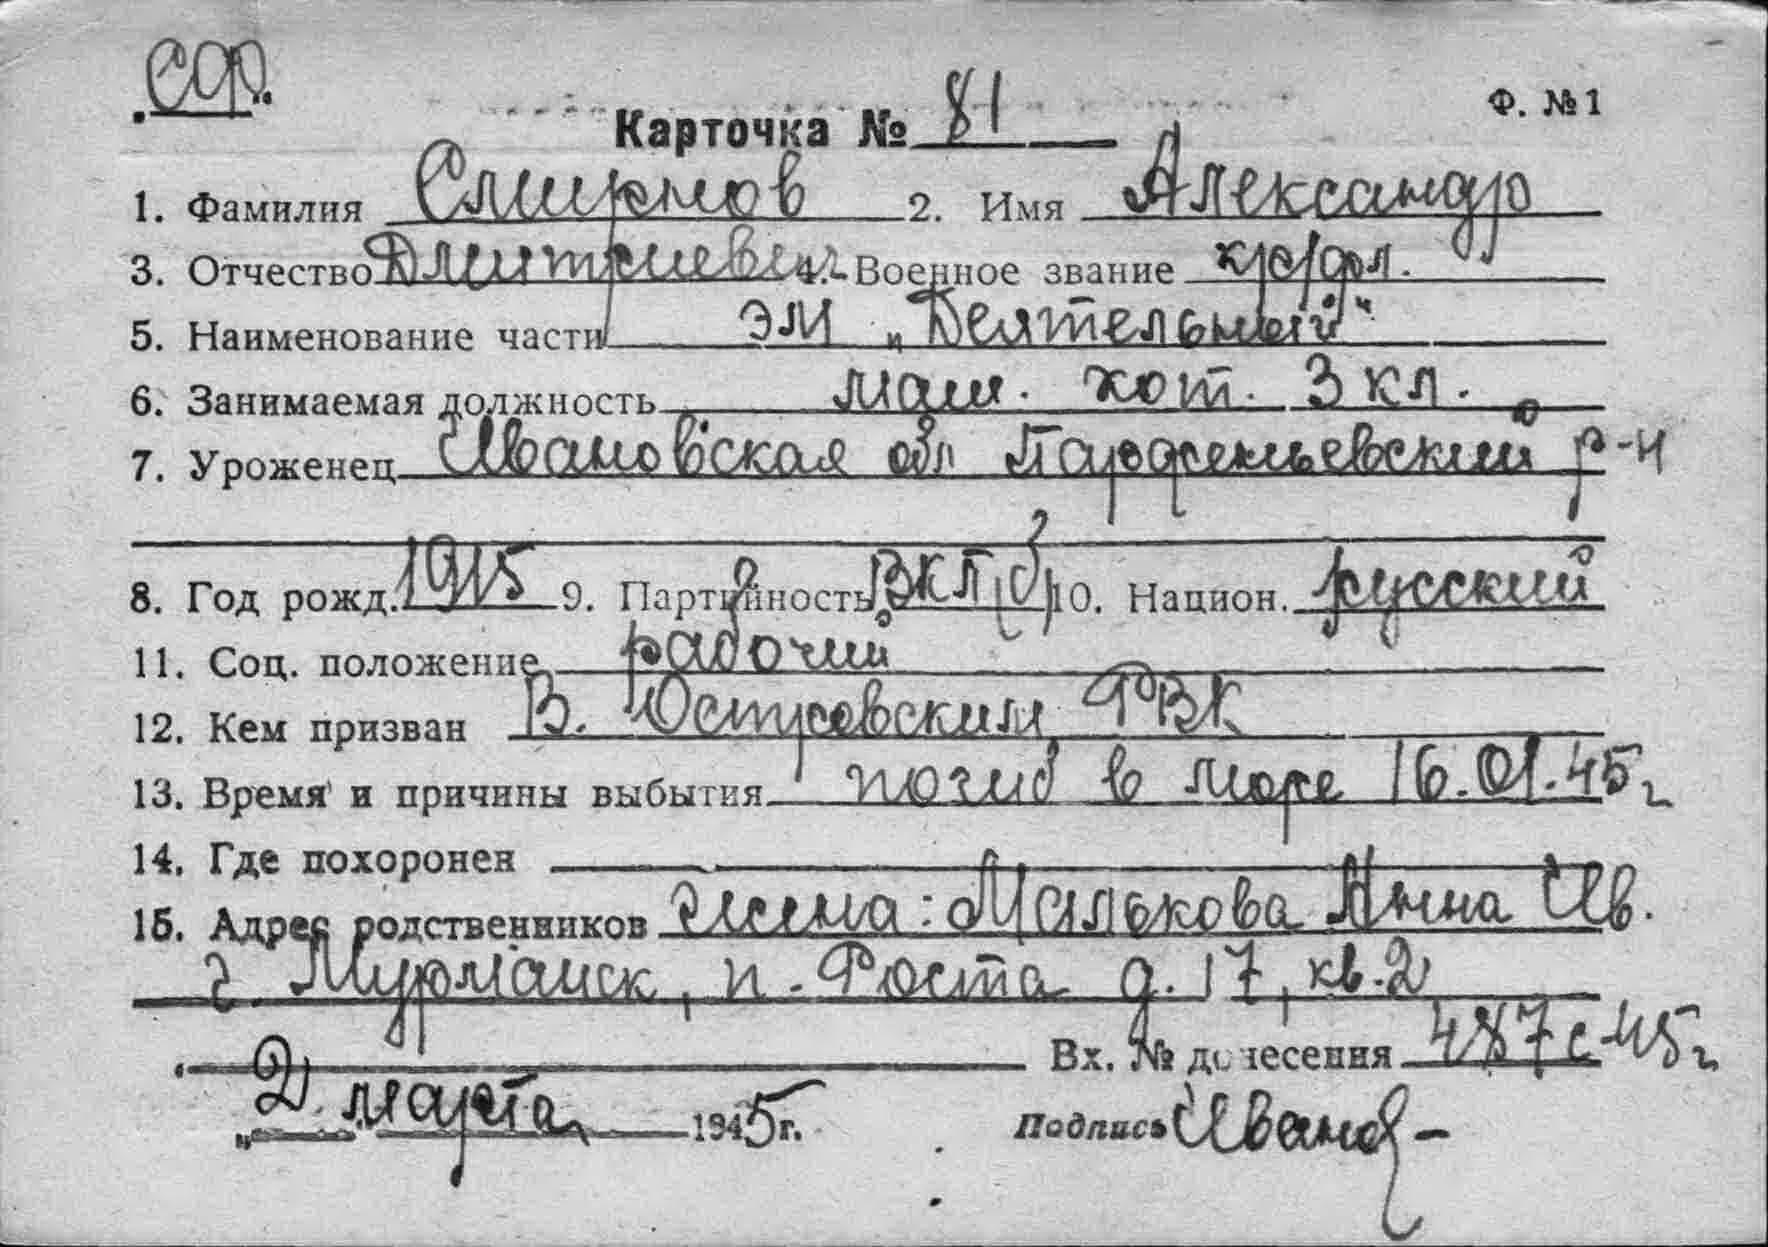 СФ
Ф. №1
Карточка № 81
1. Фамилия Смирнов 2. Имя Александр
3. Отчество Дмитриевич 4. Военное звание кр/фл.
5. Наименование части ЭМ „Деятельный"
6. Занимаемая должность маш. кот. 3 кл.
7. Уроженец Ивановская обл Парфеньевский р-н
8. Год рожд. 1915 9. Партийность ВКП(б) 10. Национ. русский
11. Соц. положение рабочий
12. Кем призван В. Островским РВК
13. Время и причины выбытия погиб в море 16.01.45 г
14. Где похоронен
15. Адрес родственников жена: Малькова Анна Ив.
г Мурманск, п. Роста д. 17, кв. 2
Вх. № донесения 487с-45 г
„2 марта 1945 г. Подпись Иванов